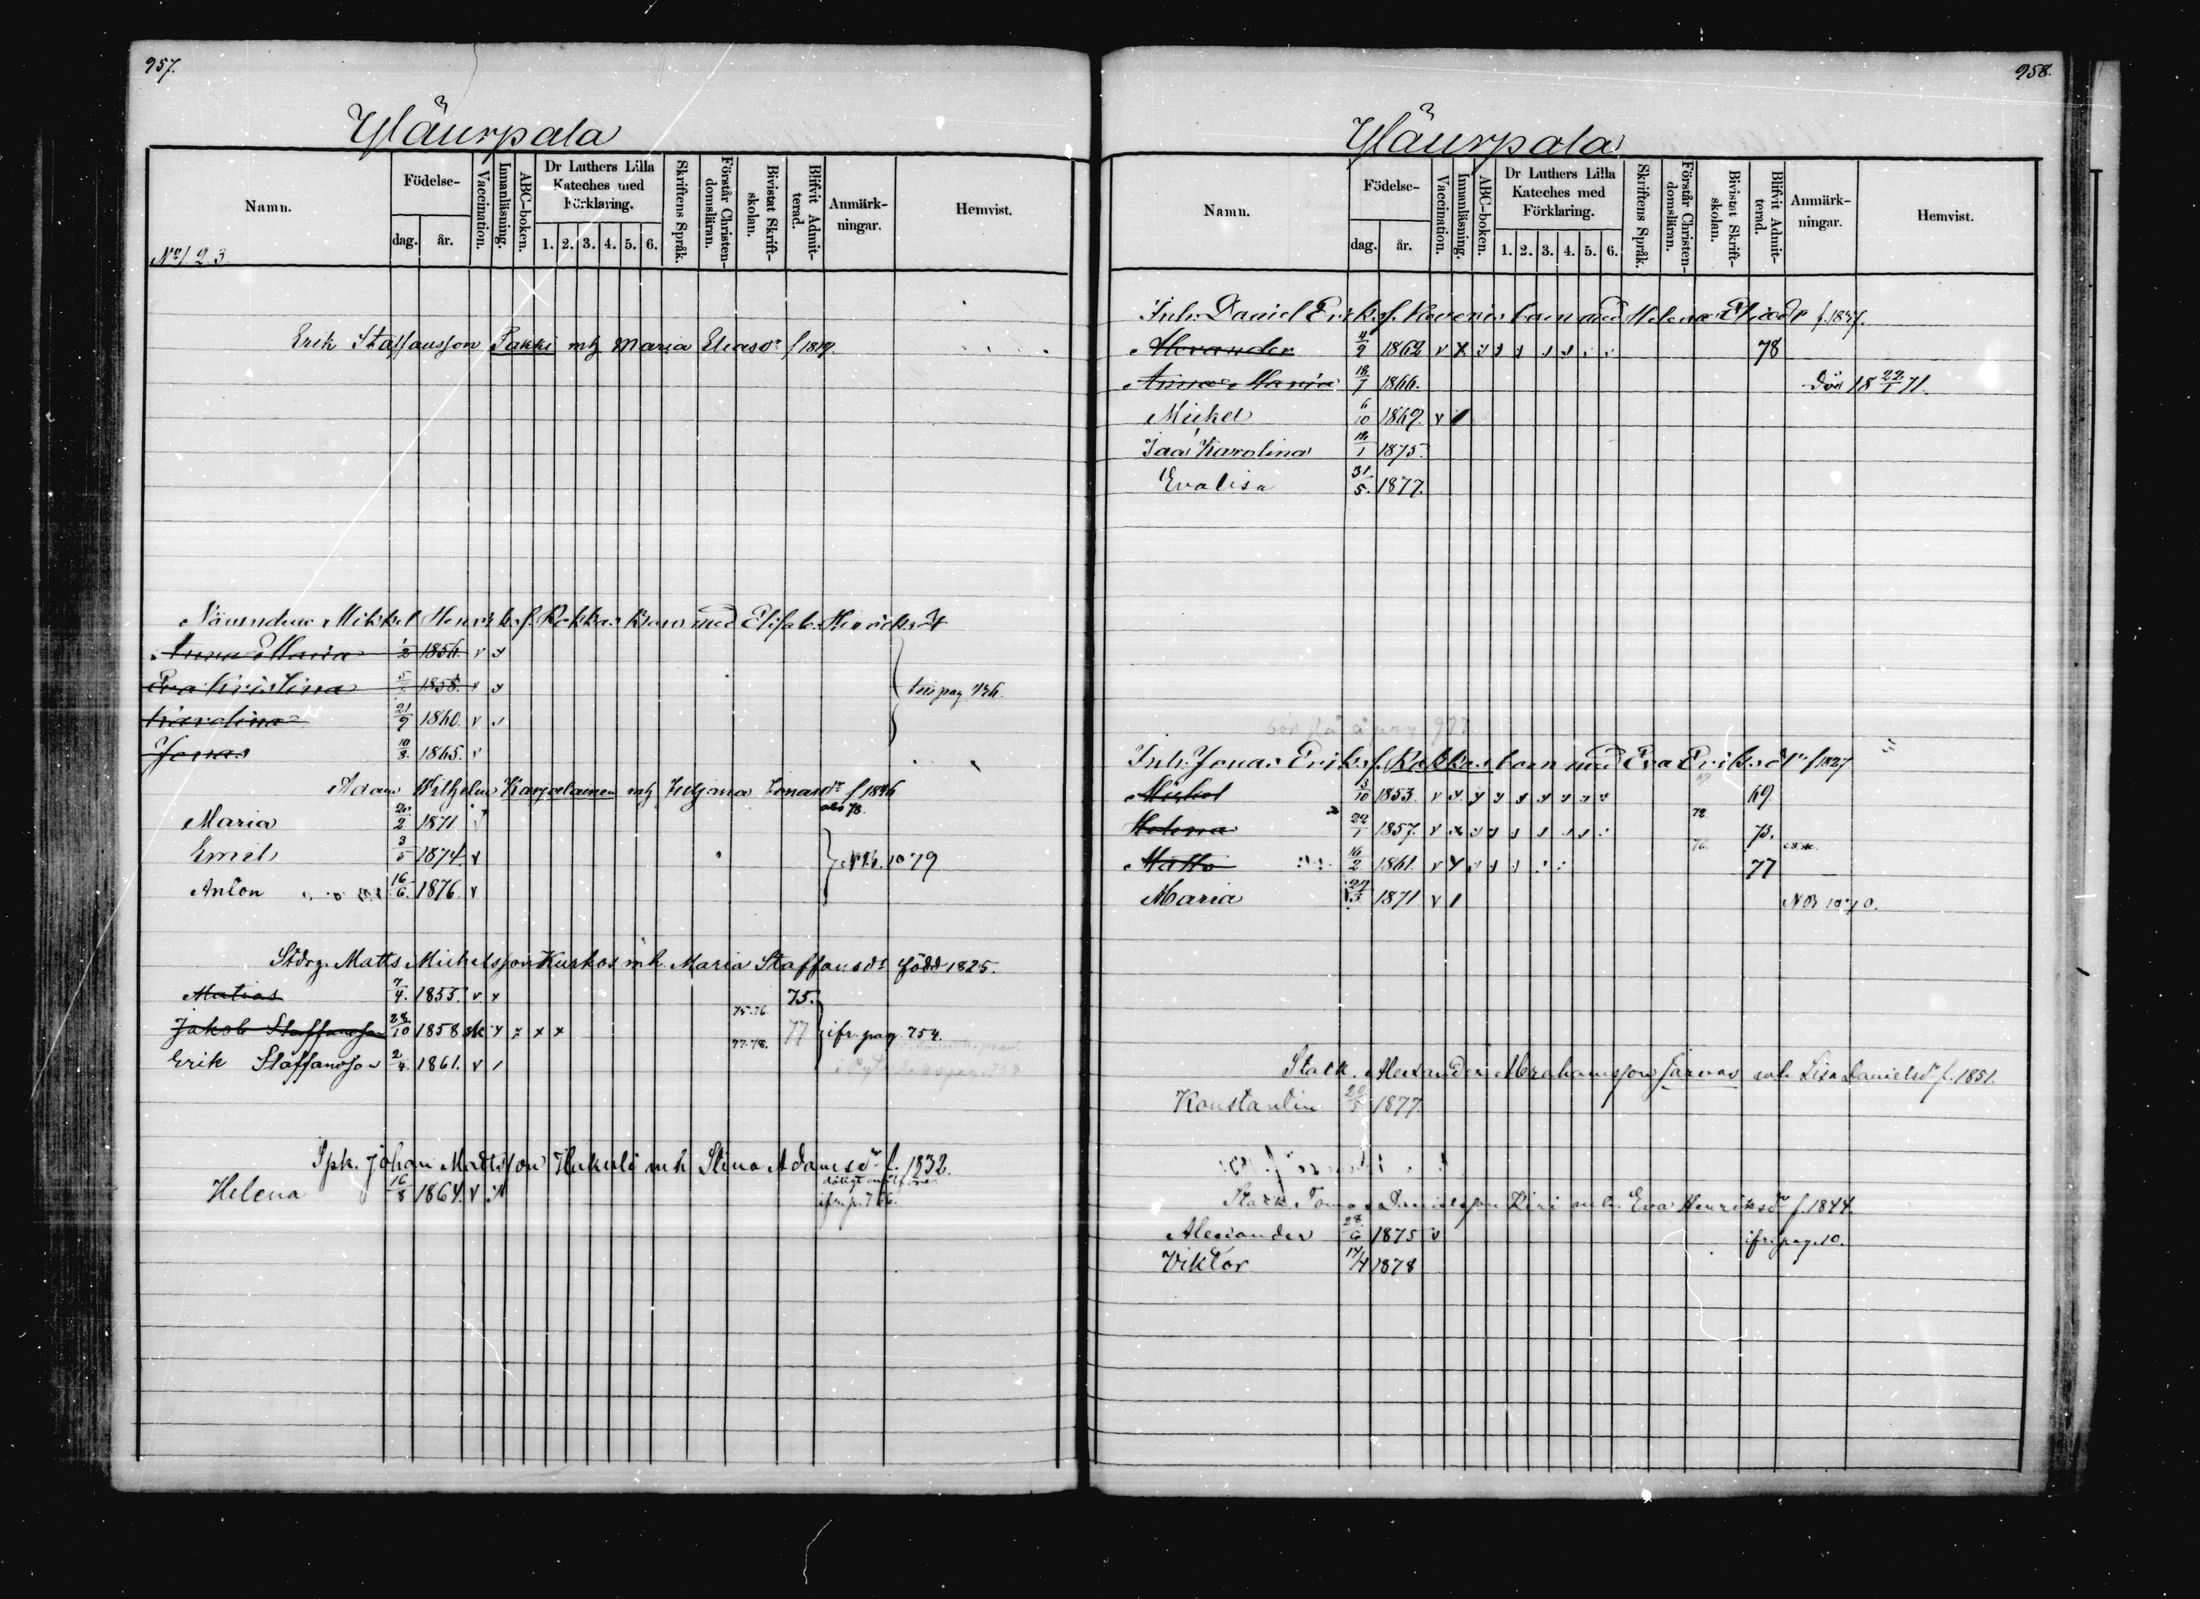 957.
Yläurpala
Namn.
Födelse-
dag. år.
Vaccination.
Innanläsning.
ABC-boken.
Dr Luthers Lilla Kateches med Förklaring.
1. 2. 3. 4. 5. 6.
Skriftens Språk.
Förstår Christendomsläran.
Bivistat Skriftskolan.
Blifvit Admitterad.
Anmärkningar.
Hemvist.
No 1. 2. 3.
Erik Staffansson Pakki mh Maria Eliasdr f 1819.
Nämndem Mikkel Henriksf. Rokkas barn med Elisab. Henriksdr
Anna Maria 1/2 1856. v y
Eva Kristina 1858. v y
Karolina 21/9 1860. v
Jonas 10/3. 1865. v
Adam Wilhelm Karjalainen mh Helj.ma Jonasdr f 1846
Maria 20/2 1871
Emel 3/5 1874 v N B. 10 79
Anton 16/6. 1876. v
Stdrg. Matts Michelsson Kurkos mh. Maria Staffansdr född 1825.
Matias 7/4. 1855. v y 75.
Jakob Staffansson 28/10 1858 sk y x x x 75.76. 77 ifr. pag. 754.
Erik Staffansson 2/4. 1861. v 77.78.
Spk. Johan Mattsson Hukuli mh Stina Adamsdr f. 1832.
Helena 16/8 1864. v
958.
Yläurpala
Namn.
Födelse-
dag. år.
Vaccination.
Innanläsning.
ABC-boken.
Dr Luthers Lilla Kateches med Förklaring.
1. 2. 3. 4. 5. 6.
Skriftens Språk.
Förstår Christendomsläran.
Bivistat Skriftskolan.
Blifvit Admitterad.
Anmärkningar.
Hemvist.
Inh. Daniel Eriksf. barn med Helena
Alexander 4/9 1862 v 78
Anna Maria 18/1 1866. död 18 22/1 71.
Mickel 6/10 1869. v
Ida Karolina 18/1 1875.
Evalisa 31/5. 1877.
Inh. Jonas Eriksf. Rokkas barn med Eva Eriksdr f 1827
Mickel 13/10 1853. v 69.
Helena 22/1 1857. v 72. 73.
Matts 16/2 1861. v 76. 77
Maria 27/3 1871 v
Statk. Alexander Abrahamsson Järvas mh. Lisa Danielsdr f. 1851.
Konstantin 20/5 1877.
Statk. Tomas Danielsson Kiri mh. Eva Henriksdr f. 1844.
Alexander 28/6 1875 v ifr. pag. 10.
Viktor 17/4 1878